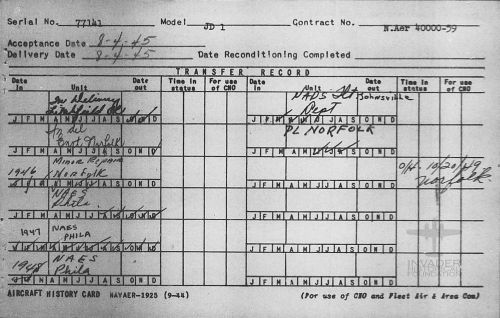 Serial No. 77141 Model JD 1 Contract No. N.Aer 40000-59
Acceptance Date 8-4-45
Delivery Date 8-4-45 Date Reconditioning Completed
TRANSFER RECORD
Date in Unit Date out Time in status For use of CNO Date in Unit Date out Time in status For use of CNO
In Delivery
NADS Johnsville
Dept
J F M A M J J A S O N D J F M A M J J A S O N D
In del
Norfolk
PL NORFOLK
J F M A M J J A S O N D J F M A M J J A S O N D
MINOR REPAIR
1946 Norfolk
10/20/49
Norfolk
J F M A M J J A S O N D J F M A M J J A S O N D
NAES
Phila
J F M A M J J A S O N D J F M A M J J A S O N D
1947 NAES
PHILA
J F M A M J J A S O N D J F M A M J J A S O N D
1948 NAES
Phila
J F M A M J J A S O N D J F M A M J J A S O N D
INVADER
FOUNDATION
AIRCRAFT HISTORY CARD NAVAER-1925 (9-44) (For use of CNO and Fleet Air & Area Com)